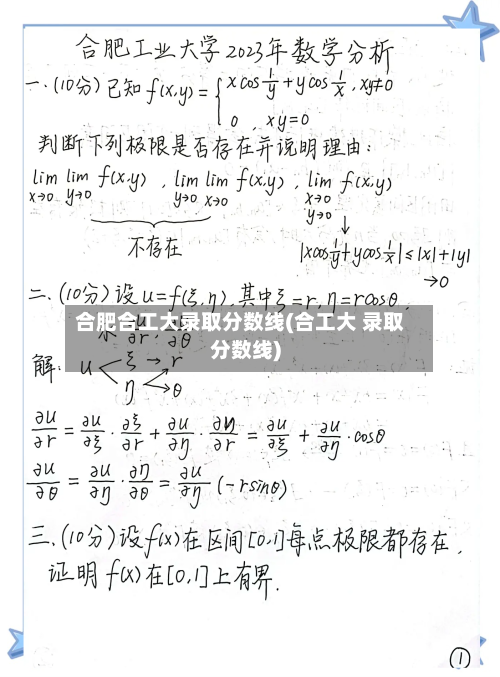 合肥工业大学2023年数学分析
一.(10分)已知 f(x,y)={ x cos 1/y + y cos 1/x , xy≠0
0 , xy=0
判断下列极限是否存在并说明理由:
lim x→0 lim y→0 f(x,y) , lim y→0 lim x→0 f(x,y) , lim x→0 y→0 f(x,y)
不存在
↓
|xcos 1/y + ycos 1/x| ≤ |x|+|y|
→0
二.(10分)设 u=f(ξ,η),其中ξ=r,η=rcosθ.
合肥合工大录取分数线(合工大 录取
分数线)
求 ∂u/∂r , ∂u/∂θ
解: u ξ → r
η → θ
∂u/∂r = ∂u/∂ξ · ∂ξ/∂r + ∂u/∂η · ∂η/∂r = ∂u/∂ξ + ∂u/∂η · cosθ
∂u/∂θ = ∂u/∂η · ∂η/∂θ = ∂u/∂η (-rsinθ)
三.(10分)设f(x)在区间[0,1]每点极限都存在,
证明 f(x)在[0,1]上有界.
①